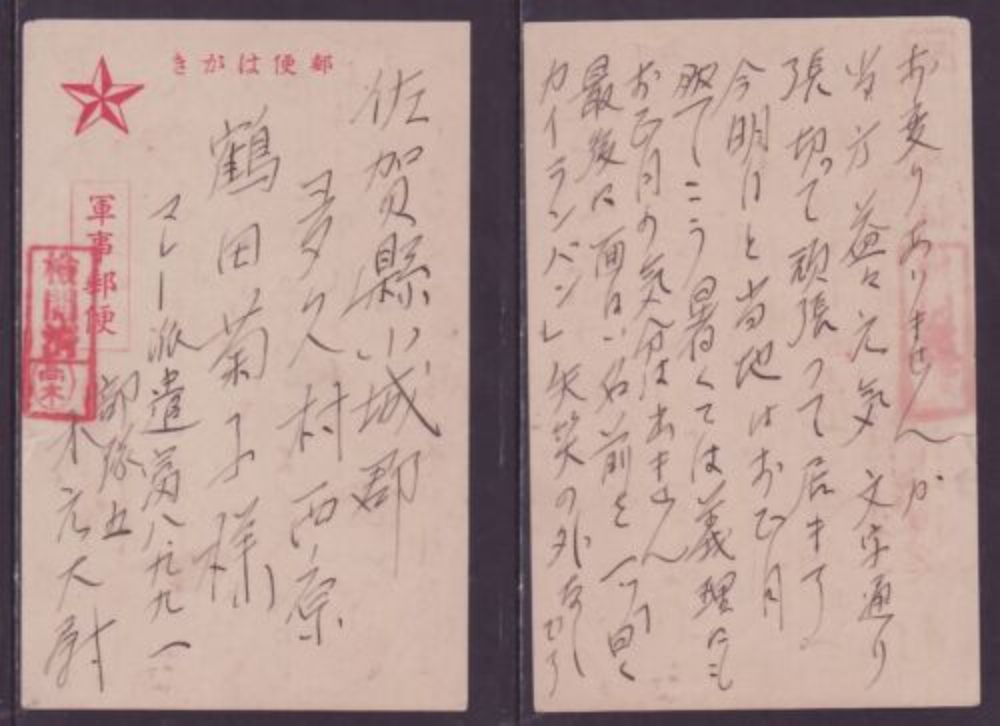 郵便はがき
軍事郵便
検閲済
高木
佐賀縣小城郡
多久村西ノ原
鶴田菊子様
マレー派遣富八九九一
部隊
木元大尉
お変りありませんか
当方益々元気文字通り
張切って頑張って居ます
今明日と当地はお正月
取てこう暑くては義理にも
お正月の気分は出ません
最後に面白い名前を一つ曰く
カイランバン 失笑の外なし